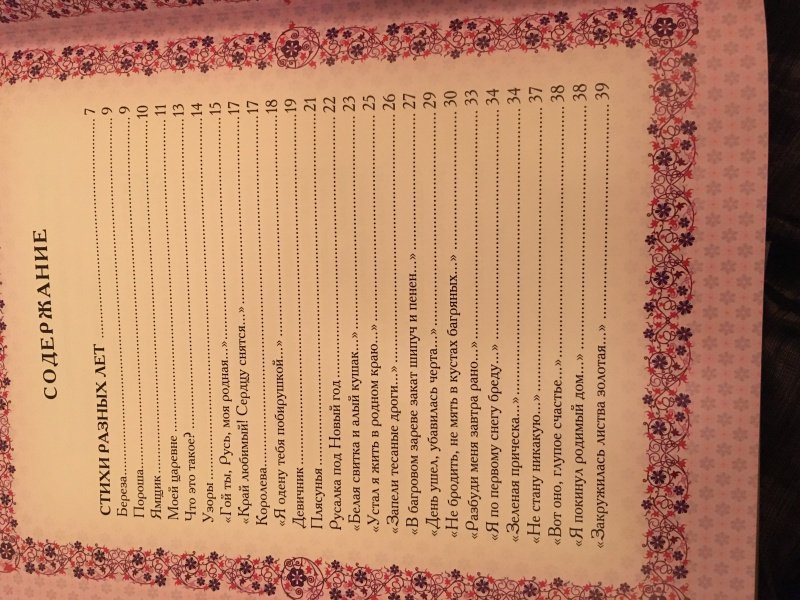 СОДЕРЖАНИЕ
СТИХИ РАЗНЫХ ЛЕТ ........ 7
Береза........ 9
Пороша........ 9
Ямщик........ 10
Моей царевне ........ 11
Что это такое? ........ 13
Узоры ........ 14
«Гой ты, Русь, моя родная...» ........ 15
«Край любимый! Сердцу снятся...» ........ 17
Королева........ 17
«Я одену тебя побирушкой...» ........ 18
Девичник ........ 19
Плясунья ........ 21
Русалка под Новый год ........ 22
«Белая свитка и алый кушак...» ........ 23
«Устал я жить в родном краю...» ........ 25
«Запели тесаные дроги...» ........ 26
«В багровом зареве закат шипуч и пенен...» ........ 27
«День ушел, убавилась черта...» ........ 29
«Не бродить, не мять в кустах багряных...» ........ 30
«Разбуди меня завтра рано...» ........ 33
«Я по первому снегу бреду...» ........ 34
«Зеленая прическа...» ........ 34
«Не стану никакую...» ........ 37
«Вот оно, глупое счастье...» ........ 38
«Я покинул родимый дом...» ........ 38
«Закружилась листва золотая...» ........ 39